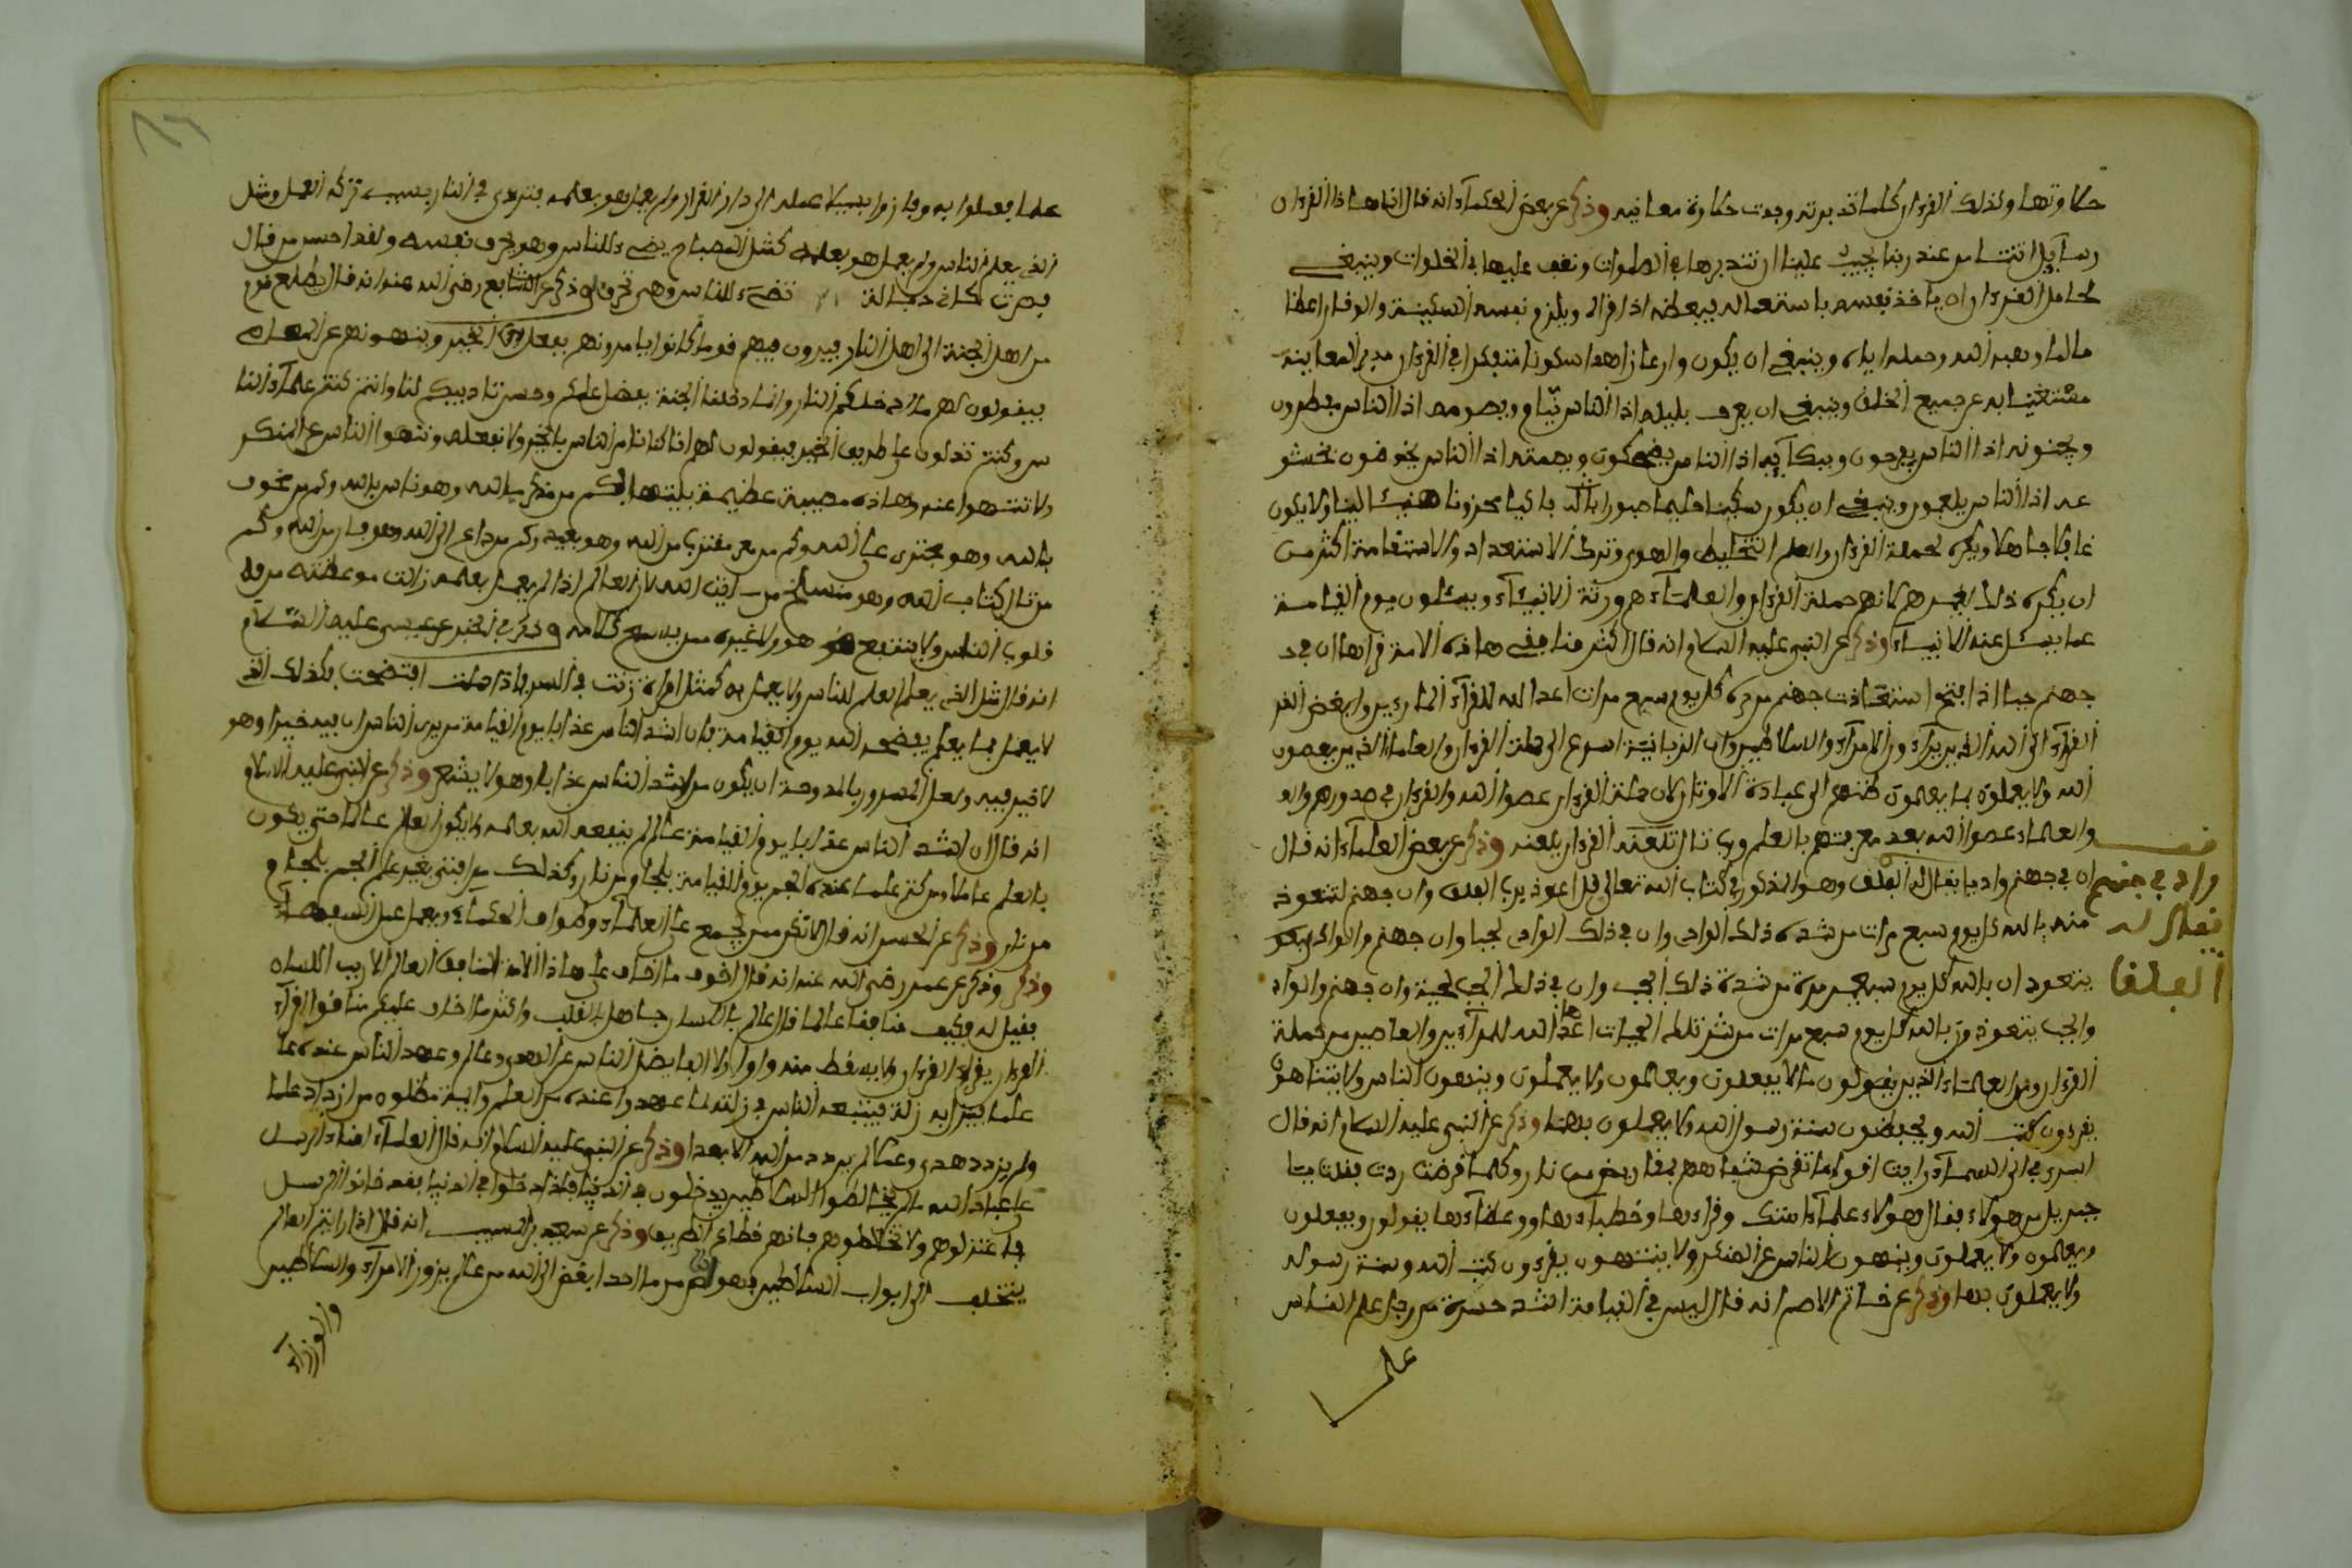 حلاوتها وكذلك القرءان كلما تدبرته وجدت حلاوة معانيه وذكر عن بعض الحكماء انه قال انما هاذا القرءان
رسايل اتتنا من عند ربنا يجب علينا ان نتدبرها في الصلوات ونقف عليها في الخلوات وينبغي
لحامل القرءان ان ياخذ نفسه باستعماله فيعظه اذا قراه ويلزم نفسه السكينة والوقار اعظاما
لما وهبه الله وحمله اياه وينبغي ان يكون وارعا زاهدا سكوتا متفكرا في القرءان مديم المعاينة
مستغنيا به عن جميع الخلق وينبغي ان يعرف بليله اذا الناس نيام وبصومه اذا الناس مفطرون
وبحزنه اذا الناس يفرحون وببكائه اذا الناس يضحكون وبصمته اذا الناس يخوضون بخشو
عه اذا الناس يلعبون وينبغي ان يكون سكينا حليما صبورا باكيا محزونا لينا ولا يكون
غافلا جاهلا ويكره لحملة القرءان والعلم التخليط واللهو وترك الاستعداد والاستقامة اكثر من
ان يكره ذلك لغيرهم لانهم حملة القرءان والعلماء هم ورثة الانبياء ويسئلون يوم القيامة
عما يسئل عنه الانبياء وذكر عن النبي عليه السلام انه قال اكثر منافقي هاذه الامة قراها ان في
جهنم جبا اذا فتح استعاذت جهنم من حره كل يوم سبع مرات اعدا الله للقراء المراءين وابغض القر
القراء الى الله الذين يزورون الامراء والسلاطين وان الزبانية اسرع الى حملة القرءان والعلماء الذين يعصون
الله ولا يعملون بما يعلمون منهم الى عبادة الاوثان لان حملة القرءان عصوا الله والقرءان في صدورهم وال
والعلماء عصوا الله بعد معرفتهم بالعلم ورب تال للقرءان القرءان يلعنه وذكر عن بعض العلماء انه قال
ان في جهنم واديا يقال له الفلق وهو المذكور في كتاب الله تعالى قل اعوذ برب الفلق وان جهنم لتتعوذ
منه بالله كل يوم سبع مرات من شدة ذلك الوادي وان في ذلك الوادي لجبا وان جهنم والوادي
يتعوذان بالله كل يوم سبعين مرة من شدة ذلك الجب وان في ذلك الجب لحية وان جهنم والواد
والجب يتعوذون بالله كل يوم سبع مرات من شر تلك الحيات اعدها الله للمراءين والعاصين من حملة
القرءان ومن العلماء الذين يقولون ما لا يفعلون ويعلمون ولا يعملون وينهون الناس ولا يتناهون
يقرءون كتب الله ويحفظون سنة رسول الله ولا يعملون بهما وذكر عن النبي عليه السلام انه قال
اسرى بي الى السماء رايت اقواما تقرض شفاههم بمقاريض من نار وكلما قرضت ردت فقلت يا
جبريل من هولاء فقال هولاء علماء امتك وقراءها وخطباءها ووعظاءها يقولون ويفعلون
ويعلمون ولا يعملون وينهون الناس عن المنكر ولا ينتهون يقرءون كتب الله وسنة رسوله
ولا يعملون بها وذكر عن حاتم الاصم انه قال ليس في القيامة اشد حسرة من رجل علم الناس
علما
قف
واد في جهنم
يقال له
الفلق
علما فعملوا به وفازوا بسبيله الى دار القرار ولم يعمل هو بعلمه فتردى في النار بسبب تركه العمل ومثل
الذي يعلم الناس ولم يعمل هو بعلمه كمثل المصباح يضيء للناس وهو يحرق نفسه ولقد احسن من قال
فصرت كاني ذبالة تضيء للناس وهي تحترق وذكر عن الشافعي رضي الله عنه انه قال يطلع قوم
من اهل الجنة الى اهل النار فيرون فيهم قوما كانوا يامرونهم بفعل الخير وينهونهم عن المعاصي
فيقولون لهم ما ادخلكم النار وانما دخلنا الجنة بفضل علمكم وحسن تاديبكم لنا وانتم كنتم علماء
وكنتم تدلون على طريق الخير فيقولون لهم انا كنا نامر الناس بالخير ولا نفعله وننهوا الناس عن المنكر
ولا ننتهوا عنه وهاذه مصيبة عظيمة فكم من مذكر بالله وهو ناس بالله وكم من مخوف
بالله وهو مجترئ على الله وكم من مقرب من الله وهو بعيد وكم من داع الى الله وهو فار من الله وكم
من تال كتاب الله وهو منسلخ من ايات الله لان العالم اذا لم يعمل بعلمه زالت موعظته من
قلوب الناس ولا ينتفع هو ولا غيره ممن يسمع كلامه وذكر في الخبر عن عيسى عليه السلام
انه قال مثل الذي يعلم العلم للناس ولا يعمل به كمثل امراة زنت في السر فاذا حملت افتضحت فكذلك الذي
لا يعمل بما يعلم يفضحه الله يوم القيامة فان اشد الناس عذابا يوم القيامة من يرى الناس ان فيه خيرا وهو
لا خير فيه ولعل المغرور بالمدوحة ان يكون من اشد الناس عذابا وهو لا يشعر وذكر عن النبي عليه السلام
انه قال ان اشد الناس عذابا يوم القيامة عالم لم ينفعه الله بعلمه ولا يكون العالم عالما حتى يكون
بالعلم عاملا ومن كتم علما عنده الجم يوم القيامة بلجام من نار وكذلك من افتى بغير علم الجم بلجام
من نار وذكر عن الحسن انه قال لا تكن ممن يجمع علم العلماء وطرايف الحكماء ويعمل عمل السفهاء
وذكر عن عمر رضي الله عنه انه قال اخوف ما اخاف على هاذا الامة المنافق العالم الاريب اللسان
فقيل له وكيف منافقا عالما قال عالم باللسان جاهل بالقلب واكثر ما اخاف عليكم منافقوا القراء
القرءان يقرا القرءان ولا يسقط منه واوا ولا الفا يضل الناس عن الهدى وعالم وعهد الناس عنده
علما فزل به زلة فيتبعه الناس في زلته لما عهدوا عنده من العلم من ازداد علما
ولم يزدد هدى لم يزدد من الله الا بعدا وذكر عن النبي عليه السلام انه قال العلماء امناء الرسل
على عباد الله ما لم يخالطوا السلاطين ويدخلون في الدنيا فاذا دخلوا في الدنيا فقد خانوا الرسل
فاعتزلوهم ولا تخالطوهم فانهم قطاع الطريق وذكر عن سعيد بن المسيب انه قال اذا رايتم العالم
يختلف الى ابواب السلاطين فهو لص من ما احد ابغض الى الله من عالم يزور الامراء والسلاطين
والوزراء